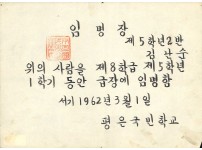 임명장
제5학년2반
김난순
위의 사람을 제8학급 제5학년
1학기 동안 급장에 임명함
서기 1962년 3월 1일
평은국민학교